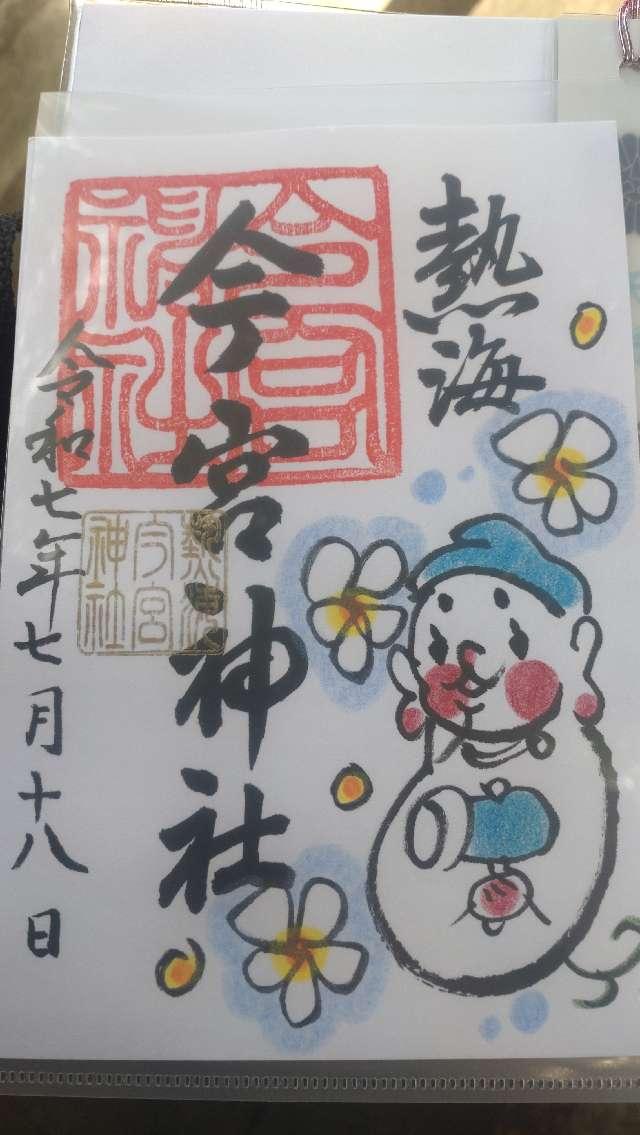 熱海
今宮神社
今宮
神社
熱海
今宮
神社
令和七年七月十八日